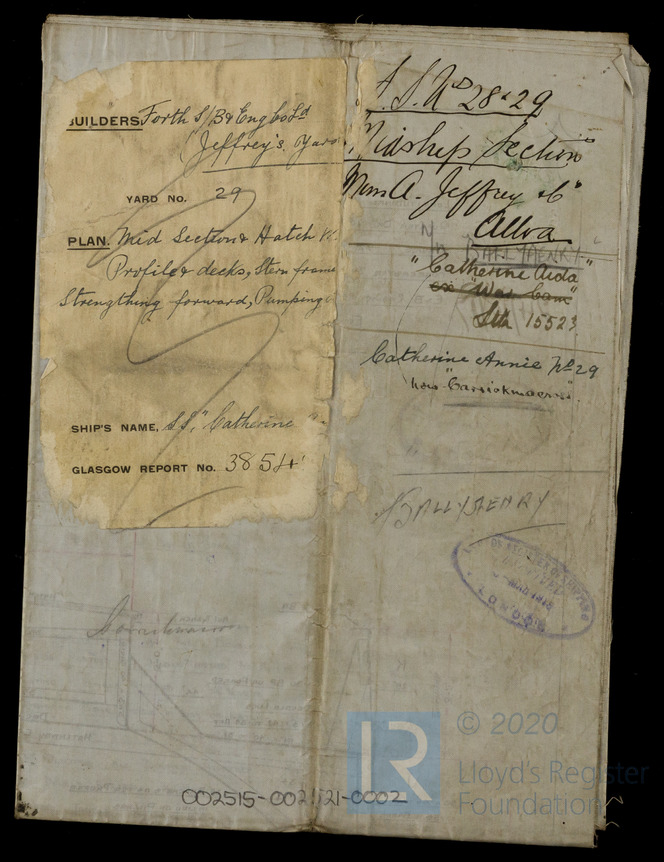 BUILDERS Forth S/B & Eng Co Ld
(Jeffrey's Yard
YARD No. 29
PLAN. Mid Section & Hatch
Profile & decks, Stern frame
Strengthing forward, Pumping
SHIP'S NAME, S.S. "Catherine
GLASGOW REPORT No. 38514
S. No 28 & 29
Midship Section
Mess A. Jeffrey & Co
Alloa
BALLYHENRY
"Catherine Aida"
ex "War
15523
Catherine Annie No 29
now "Carrickmacross".
BALLYHENRY
LLOYD'S REGISTER OF SHIPPING
MAR 1918
LONDON
Carrickmacross
002515-002521-0002
LR
© 2020
Lloyd's Register
Foundation